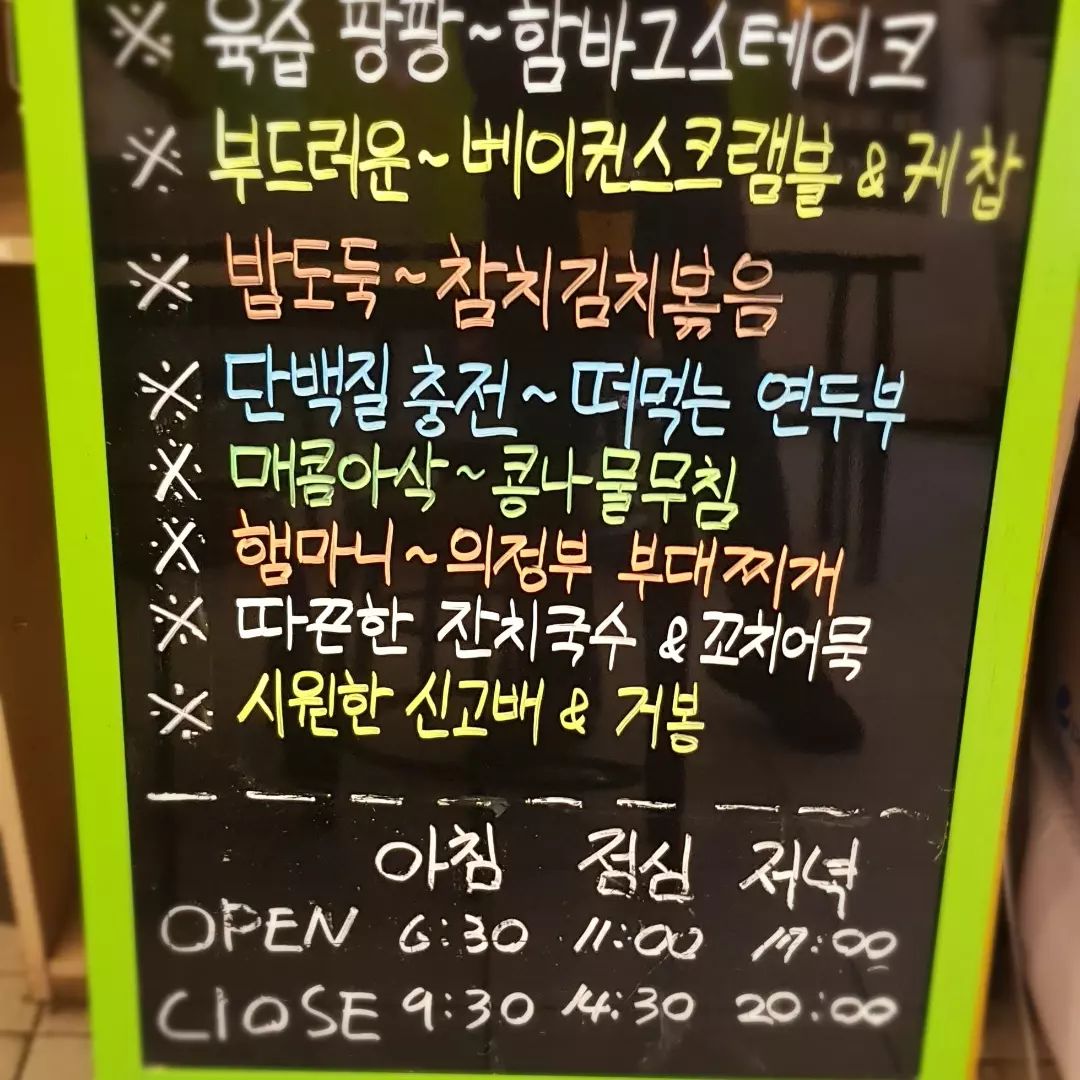 ※ 육즙 팡팡~함바그스테이크
※ 부드러운~베이컨스크램블 & 케찹
※ 밥도둑~참치김치볶음
※ 단백질 충전~떠먹는 연두부
※ 매콤아삭~콩나물무침
※ 햄마니~의정부 부대찌개
※ 따끈한 잔치국수 & 꼬치어묵
※ 시원한 신고배 & 거봉
아침 점심 저녁
OPEN 6:30 11:00 17:00
ClOSE 9:30 14:30 20:00